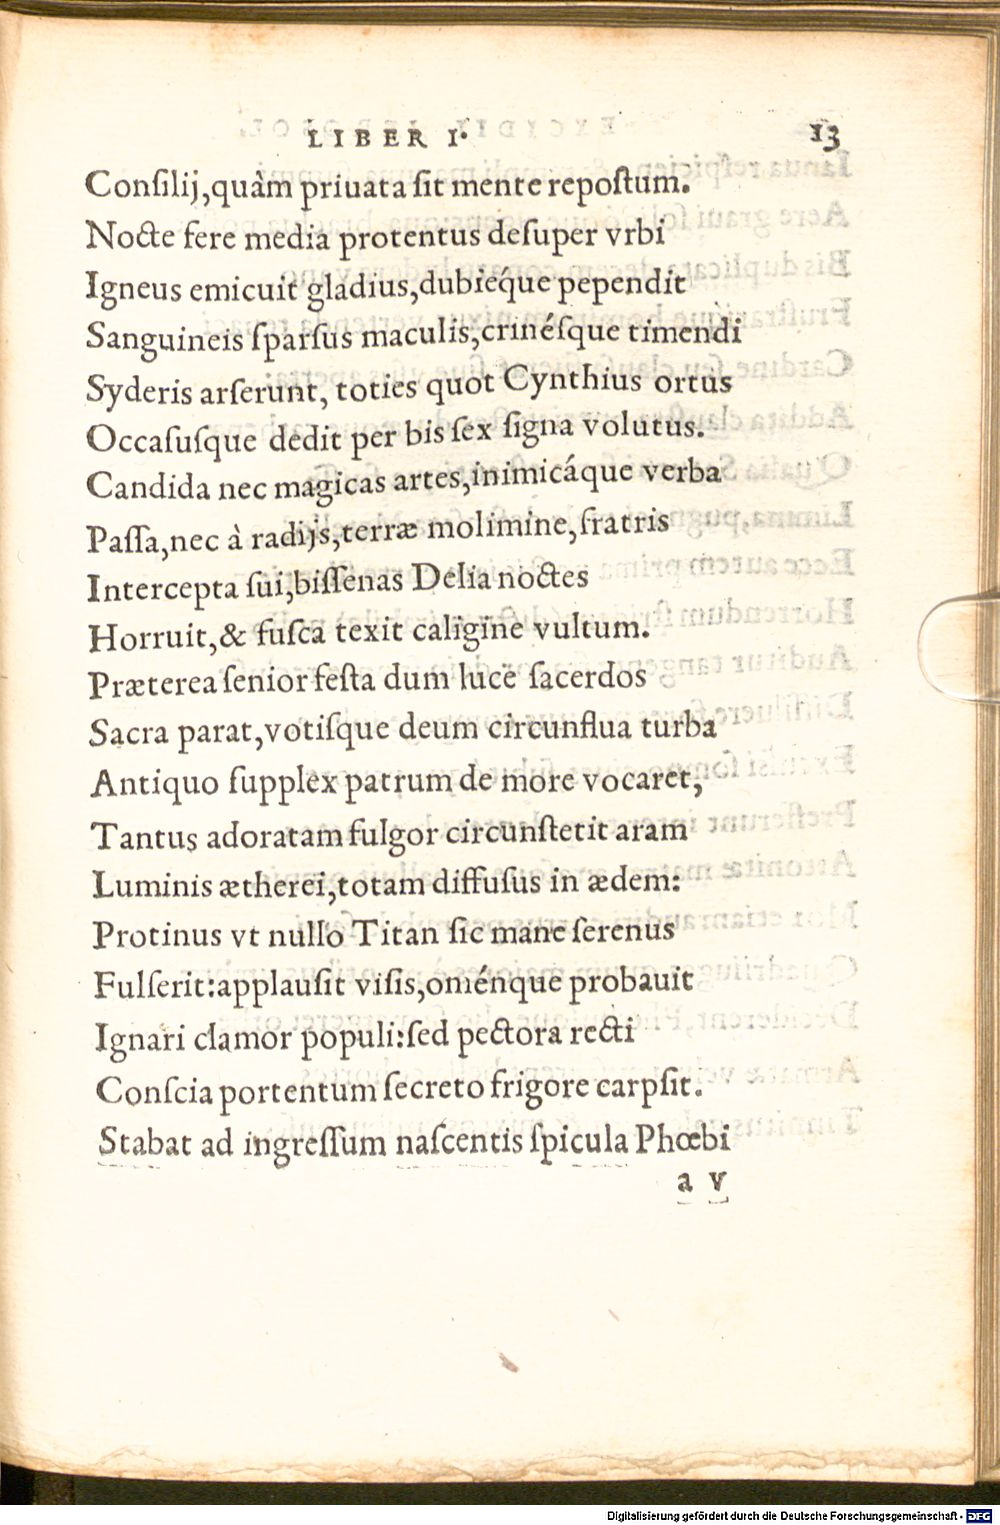 LIBER I.
13
Conſilij,quàm priuata ſit mente repoſtum.
Nocte fere media protentus deſuper vrbi
Igneus emicuit gladius,dubiéque pependit
Sanguineis ſparſus maculis,crinéſque timendi
Syderis arſerunt, toties quot Cynthius ortus
Occaſuſque dedit per bis ſex ſigna volutus.
Candida nec magicas artes,inimicáque verba
Paſſa,nec à radijs,terræ molimine,fratris
Intercepta ſui,biſſenas Delia noctes
Horruit,& fuſca texit caligine vultum.
Præterea ſenior feſta dum luce ſacerdos
Sacra parat,votiſque deum circunflua turba
Antiquo ſupplex patrum de more vocaret,
Tantus adoratam fulgor circunſtetit aram
Luminis ætherei,totam diffuſus in ædem:
Protinus vt nullo Titan ſic mane ſerenus
Fulſerit:applauſit viſis,oménque probauit
Ignari clamor populi:ſed pectora recti
Conſcia portentum ſecreto frigore carpſit.
Stabat ad ingreſſum naſcentis ſpicula Phœbi
a v
Digitalisierung gefördert durch die Deutsche Forschungsgemeinschaft - DFG